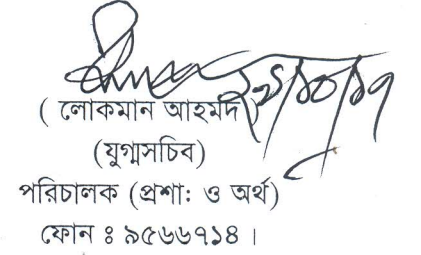 ২৬/১০/১৭
( লোকমান আহমদ )
(যুগ্মসচিব)
পরিচালক (প্রশা: ও অর্থ)
ফোন ঃ ৯৫৬৬৭১৪ ।